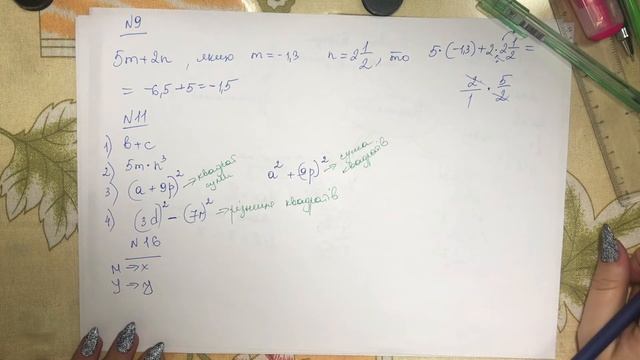 N9
5m+2n, якщо m=-1,3 n=2 1/2, то 5·(-1,3)+2·2 1/2=
2/1 · 5/2
= -6,5+5=-1,5
N11
1) b+c
2) 5m·n³
3) (a+9p)² → квадрат суми a²+(9p)² → сума квадратів
4) (3d)²-(7r)² → різниця квадратів
N16
M → x
У → y